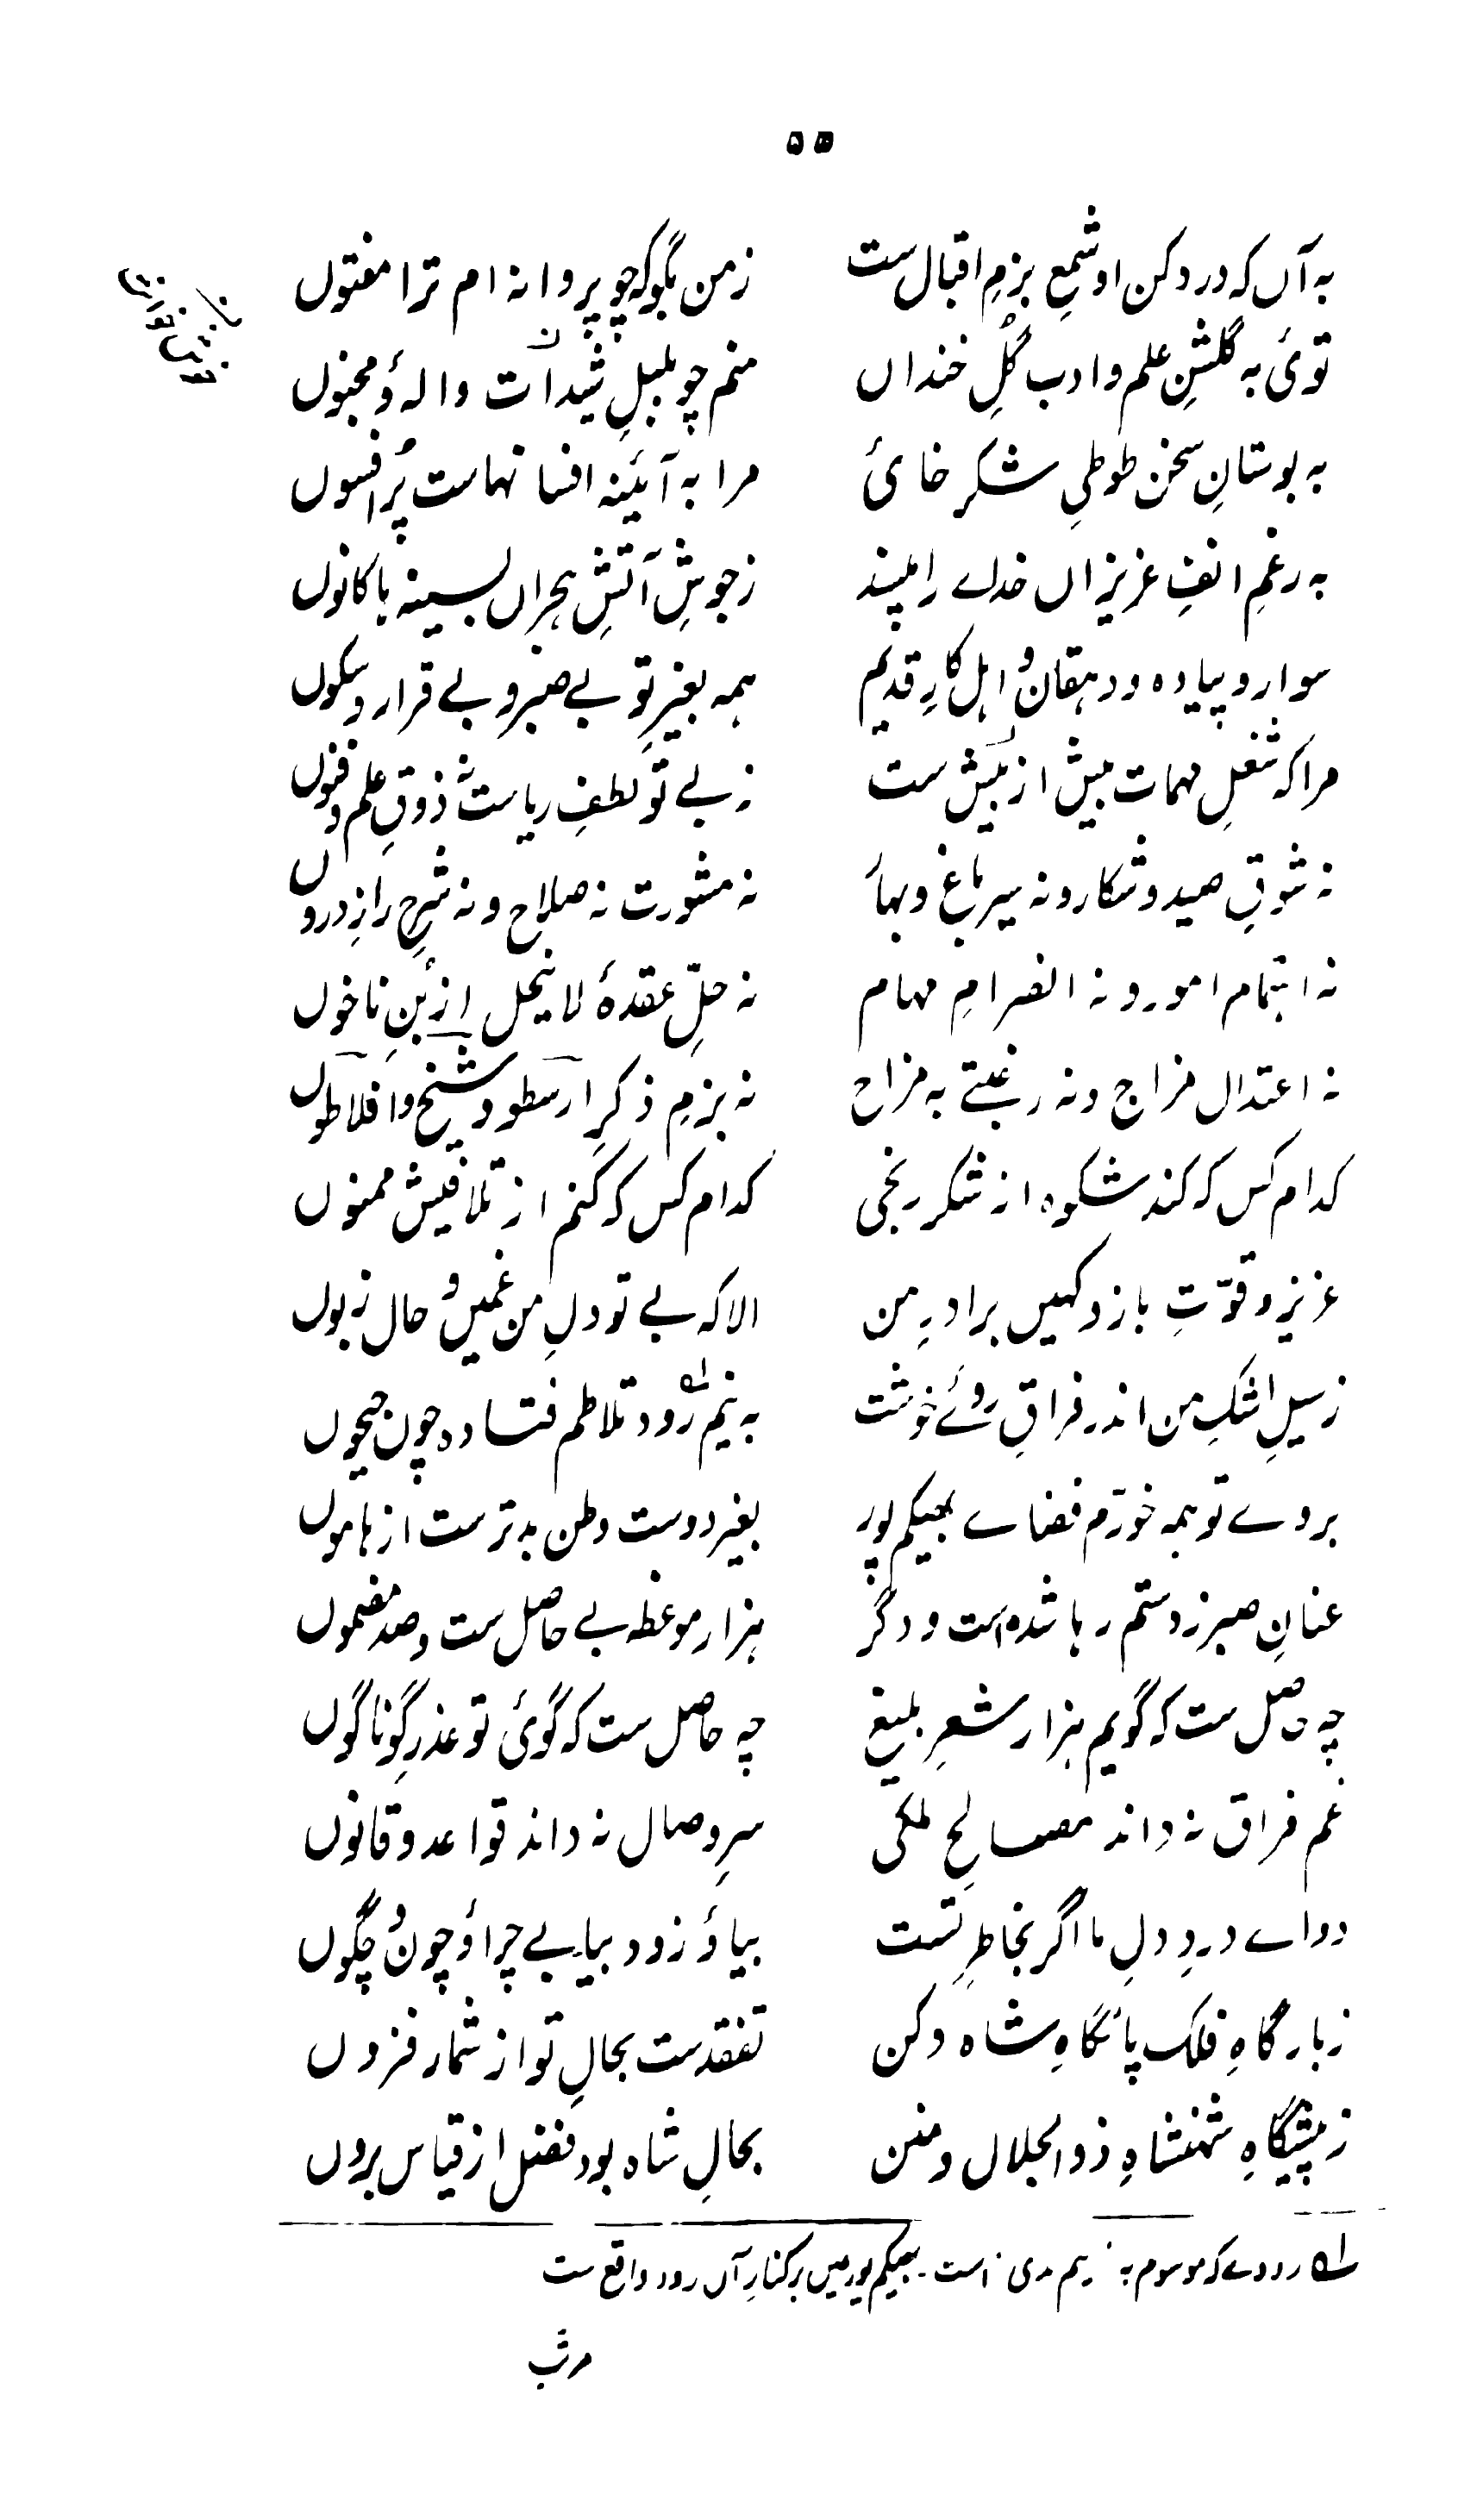 ۵۵
به آں که در دکن او شمعِ بزمِ اقبال ست زمن بگو که چو پروانه ام ترا مفتوں
توئ به گلشنِ علم و ادب گُلِ خنداں منم چو بلبلِ شیدات واله و مجنوں
به بوستانِ سخن طوطیِ شکر خائ مرا به آئینه افسانهاست پُر افسوں
به رغمِ انفِ عزیزاں خداے را مپسند زجوشِ آتشِ هجراں بسینه ها کانوں
سوار و پیاده و دهقان و اهل کارِ قدیم همه بغیر تو بے صبر و بے قرار و سکوں
مرا که شغلِ مهمات بیش از بیش ست نه بے تو لطفِ ریاست نه ذوقِ علم و فنوں
نه شوقِ صید و شکار و نه سیر باغ و بهار نه مشورت نه صلاح و نه شرحِ رازِ دروں
نه اهتمام امور و نه انصرامِ مهام نه حلِّ عقدهٔ لاینحل از بُنِ ناخوں
نه اعتدال مزاج و نه رغبتے به مزاح نه بزمِ ذکرِ ارسطو و شیخ و افلاطوں
کدام کس که کند شکوه از شکر رنجی کدام کس که کنم از تلافیش ممنوں
عزیز و قوّتِ بازو کهیں برادرِ من الا که بے تو دلِ من غمین و حال زبوں
زسیلِ اشکِ من اندر فراقِ روئے خوشت به نیم رود تلاطم فتاده چون جیحوں
بروے تو همه خورّم فضاے بهیکم پور بغیر دوست وطن بدترست از هاموں
عنانِ صبر زدستم رها شده است و دگر هزار موعظه بے حاصل ست و صد مضموں
چه حاصل ست که گویم هزار شعرِ بلیغ چه حاصل ست که گوئ تو عذرِ گوناگوں
غم فراق نه داند مصالحِ ملکی سرِ وصال نه داند قواعد و قانوں
دواے دردِ دلِ ما اگر بخاطرِ تست بیا و زود بیا بے چرا و چون و چگوں
زبارگاهِ فلک پائگاهِ شاه دکن تفقدست بحالِ تو از شمار فزوں
زپیشگاهِ شهنشاهِ ذوالجلال و منن بحالِ شاه بود فضل از قیاس بروں
له رودے که موسوم به نیم ندی است۔ بهیکم پور میں بر کنارِ آں رود واقع ست
مرتب